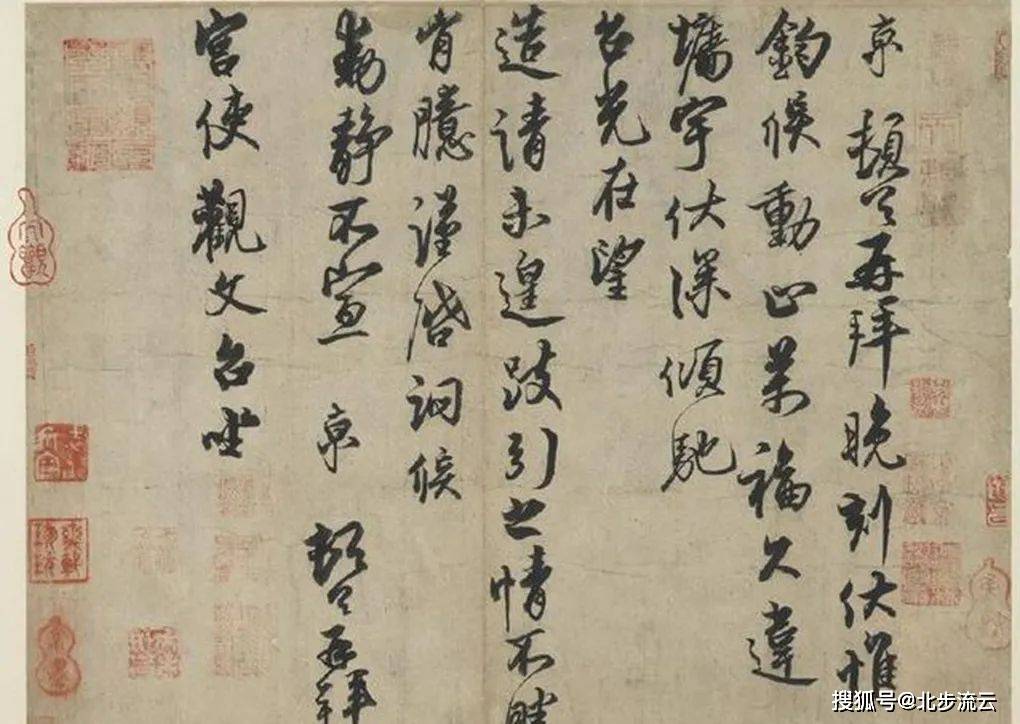 京 頓首再拜晚刻伏惟
鈞候動止萬福久違
墉宇伏深傾馳
台光在望
造請未遑跂引之情不勝
胷臆謹啓詗候
動靜不宣 京 頓首再拜
宮使觀文台坐
大觀
搜狐号@北步流云